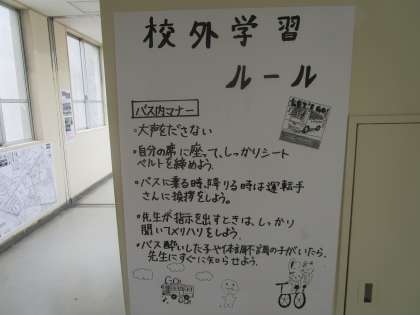 校外学習
ルール
バス内マナー
・大声をださない
・自分の席に座って、しっかりシート
ベルトを締めよう。
・バスに乗る時、降りる時は運転手
さんに挨拶をしよう。
・先生が指示を出すときは、しっかり
聞いてメリハリをしよう。
・バス酔いした子や体調不調の子がいたら、
先生にすぐに知らせよう。
Let's Go!
GO!